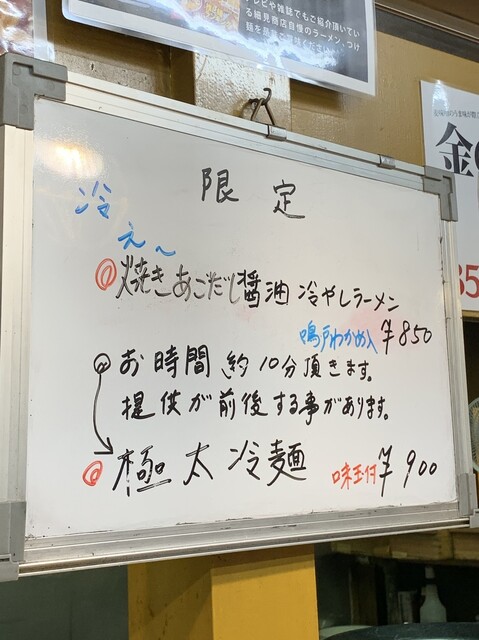 レビや雑誌でもご紹介頂いてい
る細見商店自慢のラーメン、つけ
限定
冷
え～
焼きあごだし醤油冷やしラーメン
鳴戸わかめ入 ¥850
お時間約10分頂きます。
提供が前後する事があります。
極太冷麺 味玉付 ¥900
金
85